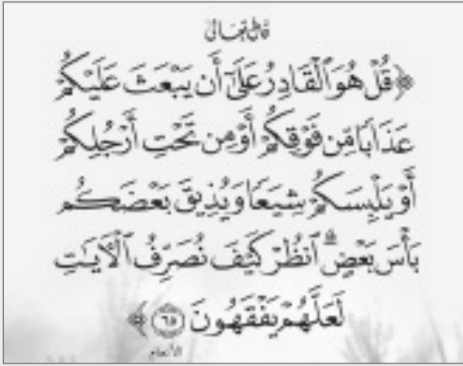 قال تعالى
﴿ قُلْ هُوَ ٱلْقَادِرُ عَلَىٰٓ أَن يَبْعَثَ عَلَيْكُمْ
عَذَابًا مِّن فَوْقِكُمْ أَوْ مِن تَحْتِ أَرْجُلِكُمْ
أَوْ يَلْبِسَكُمْ شِيَعًا وَيُذِيقَ بَعْضَكُم
بَأْسَ بَعْضٍ ۗ ٱنظُرْ كَيْفَ نُصَرِّفُ ٱلْءَايَٰتِ
لَعَلَّهُمْ يَفْقَهُونَ ٦٥ ﴾
الأنعام